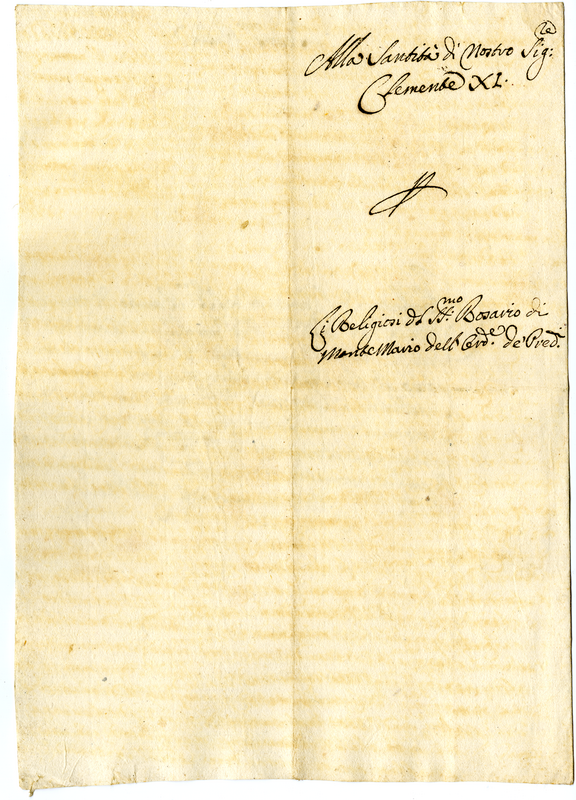 Alla Santità di Nostro Sig:re
Clemente XI.
Li Religiosi del SS:mo Rosario di
Monte Mario dell' Ord:e de' Pred: